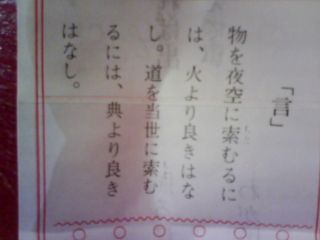 「言」
物を夜空に索むるに
は、火より良きはな
し。道を当世に索む
るには、典より良き
はなし。